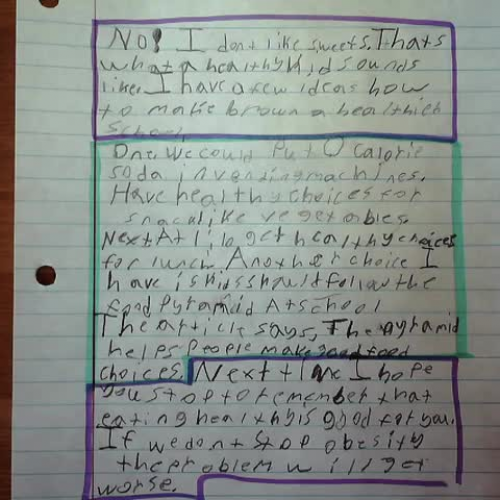 No! I dont like sweets. Thats
what a healthy kid sounds
like. I have a few ideas how
to make brown a healthier
School.
One we could Put 0 calorie
soda in vending machines.
Have healthy choices for
snack like vegetables
Next At l to get healthy choices
for lunch. Another choice I
have is kids should follow the
food Pyramid At school
The article says, The pyramid
helps People make good food
choices. Next time I hope
you stop to remember that
eating healthy is good for you.
If we dont stop obesity
the problem will get
worse.